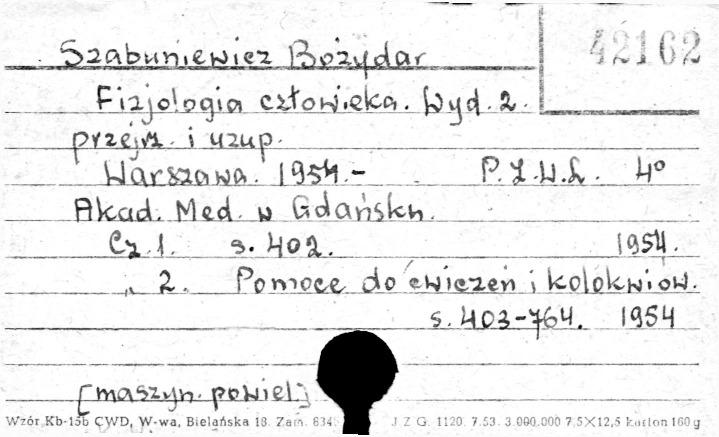 42162
Szabuniewicz Bożydar
Fizjologia człowieka. Wyd. 2.
przejrz. i uzup.
Warszawa. 1954.- P.Z.W.L. 4°
Akad. Med. w Gdańsku.
Cz. 1. s. 402. 1954.
„ 2. Pomoce do ćwiczeń i kolokwiów.
s. 403-764. 1954
[maszyn. powiel.]
Wzór Kb-15b CWD, W-wa, Bielańska 18. Zam. 834 J Z G. 1120. 7.53. 3.000.000 7,5×12,5 karton 160 g